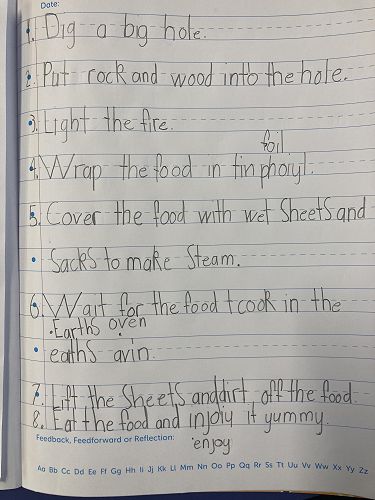 Date:
1. Dig a big hole.
2. Put rock and wood into the hole.
3. Light the fire.
foil
4. Wrap the food in tin phoiyl.
5. Cover the food with wet Sheets and
Sacks to make Steam.
6. Wait for the food t cook in the
Earths oven
eaths avin.
7. Lift the Sheets and dirt off the food.
8. Eat the food and injoiy it yummy.
enjoy
Feedback, Feedforward or Reflection:
Aa Bb Cc Dd Ee Ff Gg Hh Ii Jj Kk Ll Mm Nn Oo Pp Qq Rr Ss Tt Uu Vv Ww Xx Yy Zz